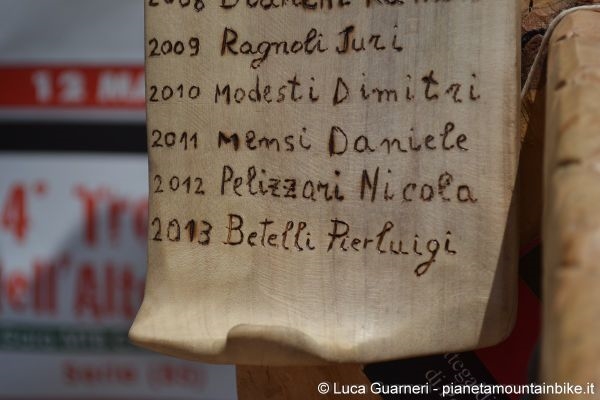 2008
2009 Ragnoli Juri
2010 Modesti Dimitri
2011 Memsi Daniele
2012 Pelizzari Nicola
2013 Betelli Pierluigi
12 MA
4°
ell'Alt
(BS)
© Luca Guarneri - pianetamountainbike.it